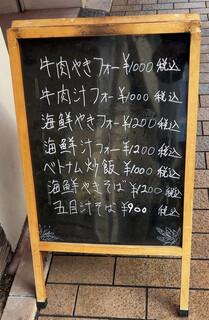 牛肉やきフォー ¥1000 税込
牛肉汁フォー ¥1000 税込
海鮮やきフォー ¥1200 税込
海鮮汁フォー ¥1200 税込
ベトナム炒飯 ¥1000 税込
海鮮やきそば ¥1200 税込
五目汁そば ¥900 税込